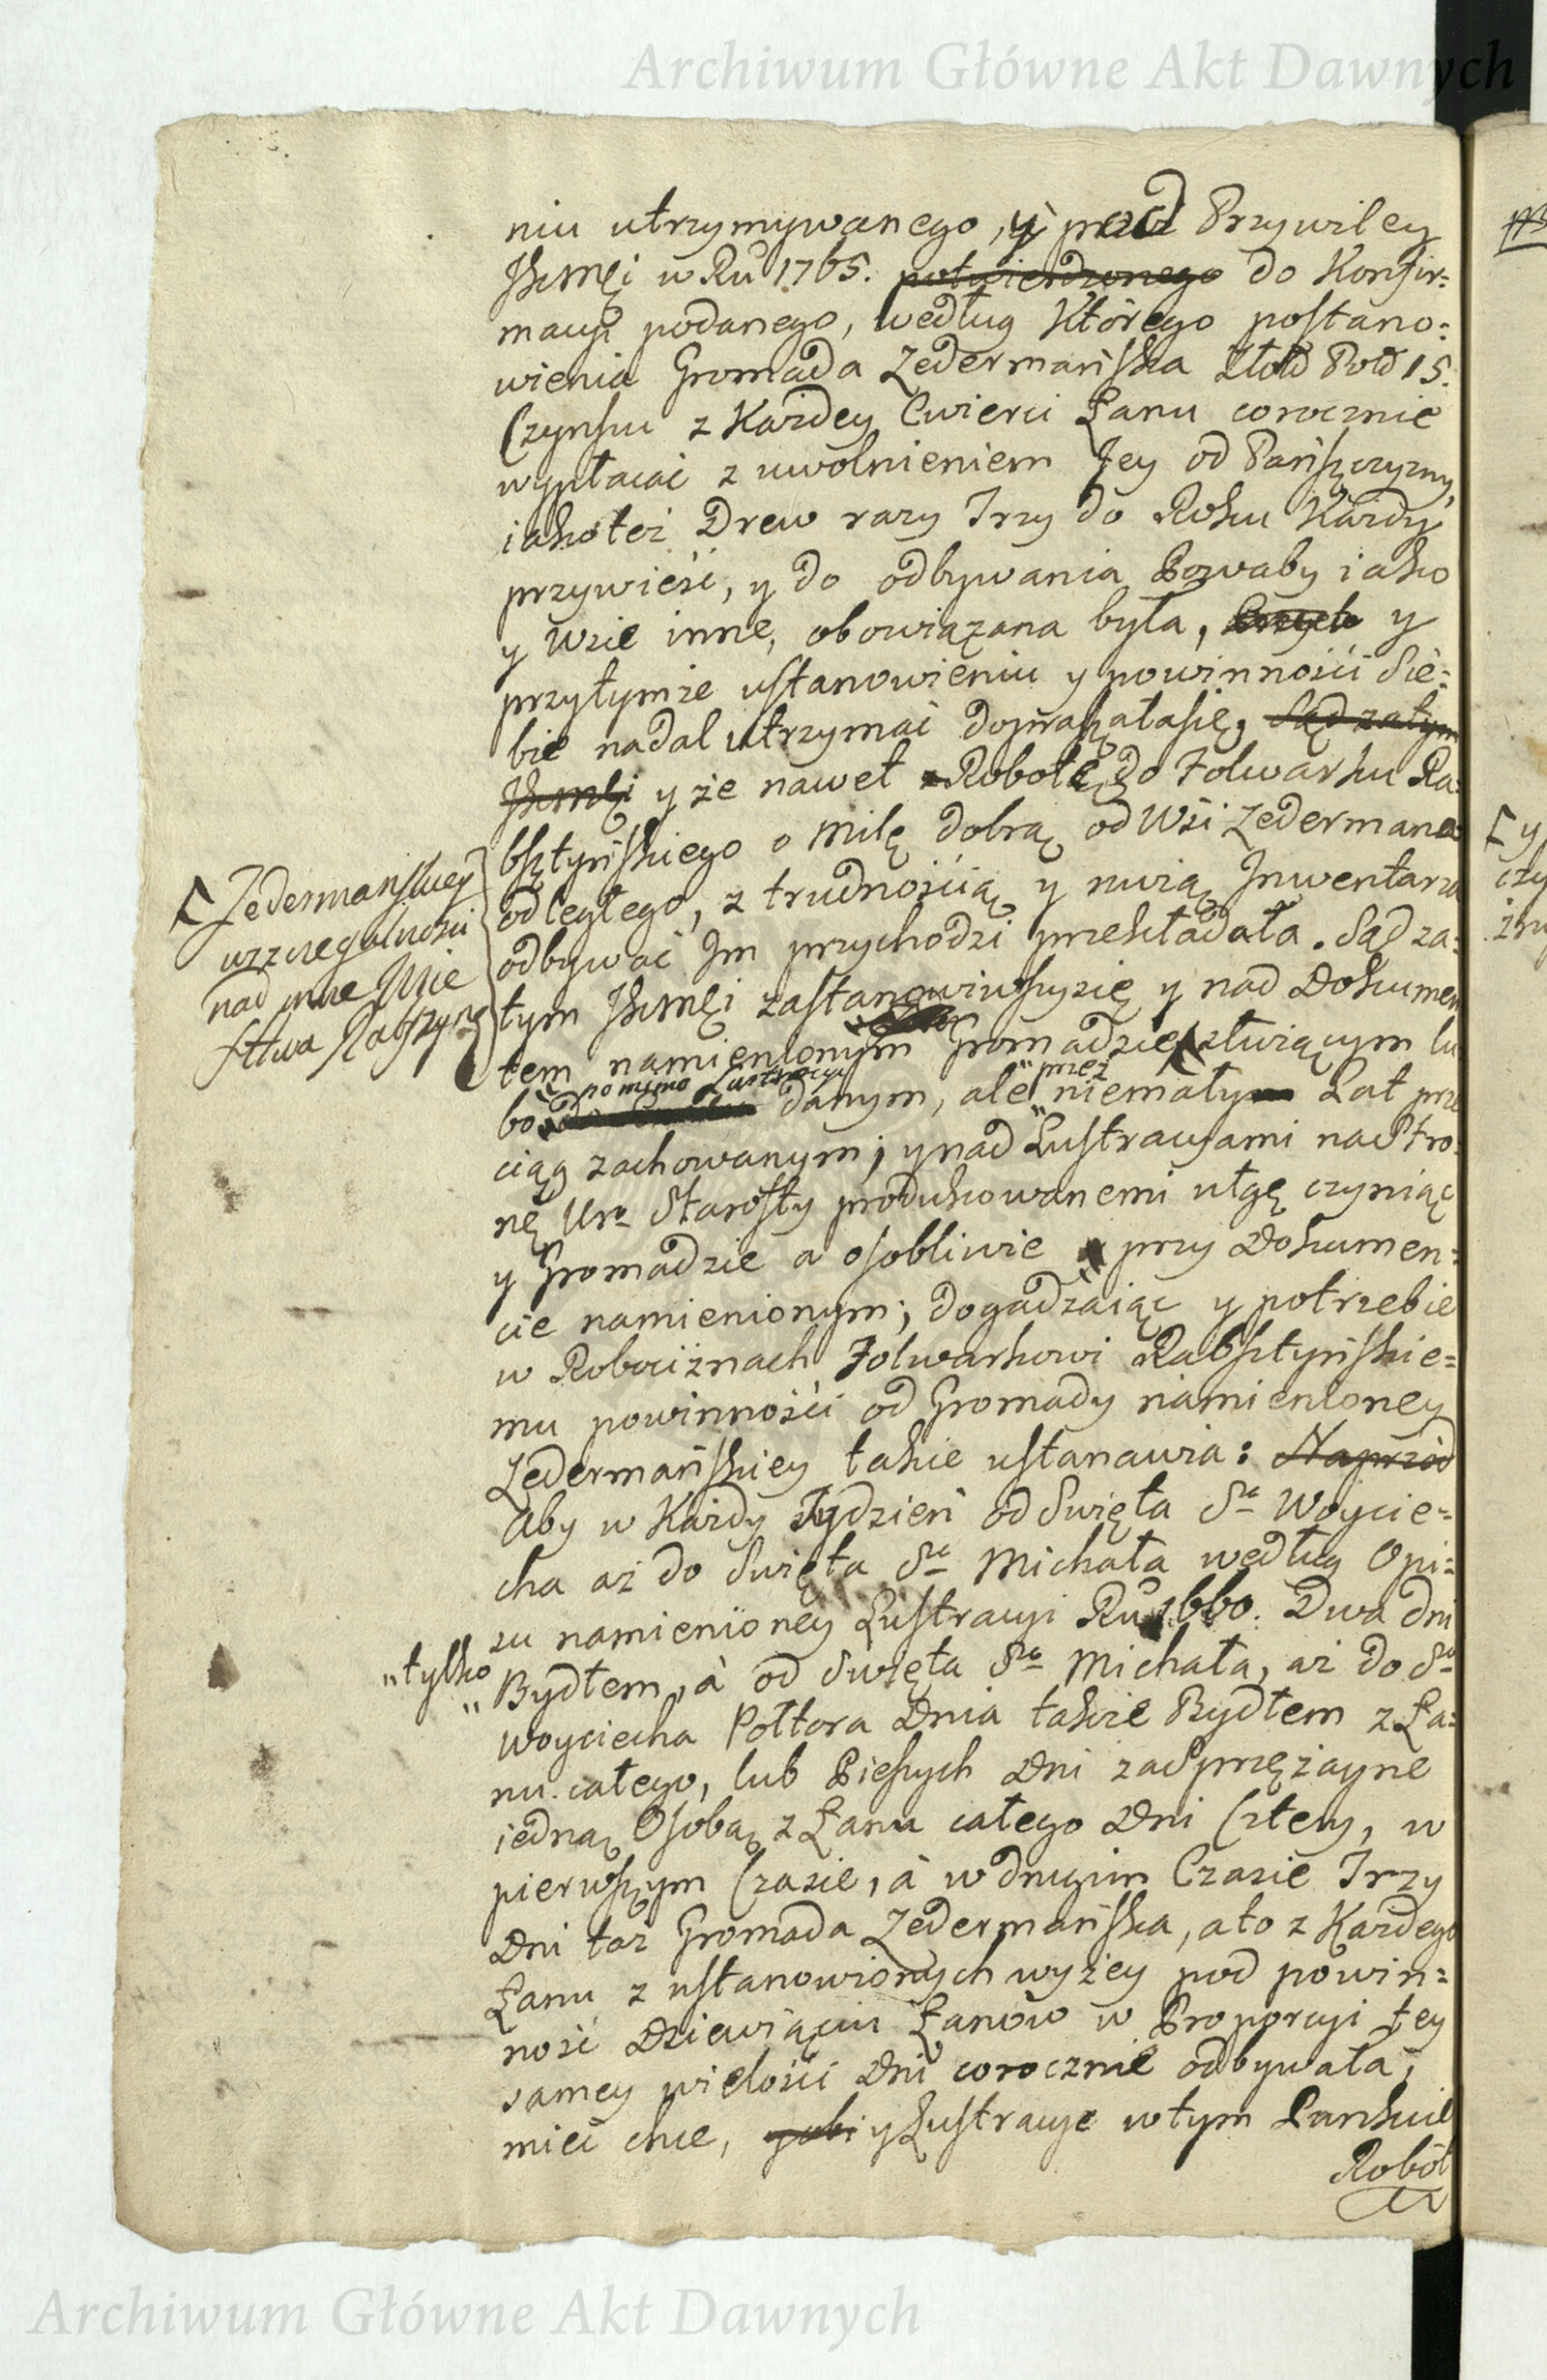 Archiwum Główne Akt Dawnych
niu utrzymywanego, y Przywiley
JKMci w Ru 1765. potwierdzonego do Konfir=
macyi podanego, według Którego postano=
wienia Gromada Zedermańska Złotł Pold 15.
Czynszu z Każdey Cwierci Łanu corocznie
wypłacać z uwolnieniem Jey od Pańszczyzny,
iakoteż Drew razy Trzy do Roku Każdy
przywieść, y do odbywania Powaby iako
y Wsie inne, obowiązana była, y
przytymże ustanowieniu y powinności Sie=
bie nadal utrzymać dopraszałasię, Sąd zatym
JKmci y że nawet Robotę do Folwarku Ra=
bsztyńskiego o Milę dobrą od Wsi Zedermana
odległego, z trudnością y nużą Inwentarza
odbywać Im przychodzi przekładała. Sąd za=
tym JKMci zastanowiwszysię y nad Dokumen
tem namienionym Gromadzie służącym lu
bo pomimo Lustracyi danym, ale przez niemały Lat prze
ciąg zachowanym; y nad Lustracyami na Stro=
nę Uro Starosty produkowanemi ulgę czyniąc
y Gromadzie a osobliwie przy Dokumen=
cie namienionym; dogadzaiąc y potrzebie
w Robociznach Folwarkowi Rabsztyńskie=
mu powinności od Gromady namienioney
Zedermańskiey takie ustanawia: Naprzód
Aby w Każdy Tydzień od Swięta So Woycie=
cha aż do Swięta So Michała według Opi=
su namienioney Lustracyi Ru 1660. Dwa dni
„tylko„ Bydłem, à od Swięta So Michała, aż do So
Woyciecha Połtora Dnia także Bydłem z Ła=
nu całego, lub Pieszych Dni za Sprzężayne
iedną Osobą z Łanu całego Dni Cztery, w
pierwszym Czasie, à w drugim Czasie Trzy
Dni taż Gromada Zedermańska, ato z Każdego
Łanu z ustanowionych wyżey pod powin=
ność Dziewiąciu Łanów w Proporcyi tey
samey wielości Dni corocznie odbywała,
mieć chce, y Lustracye wtym Punkcie
Robót
Zedermańskiey
wszczegulności
nad inne Wsie
Sttwa Rabsztyn
Archiwum Główne Akt Dawnych